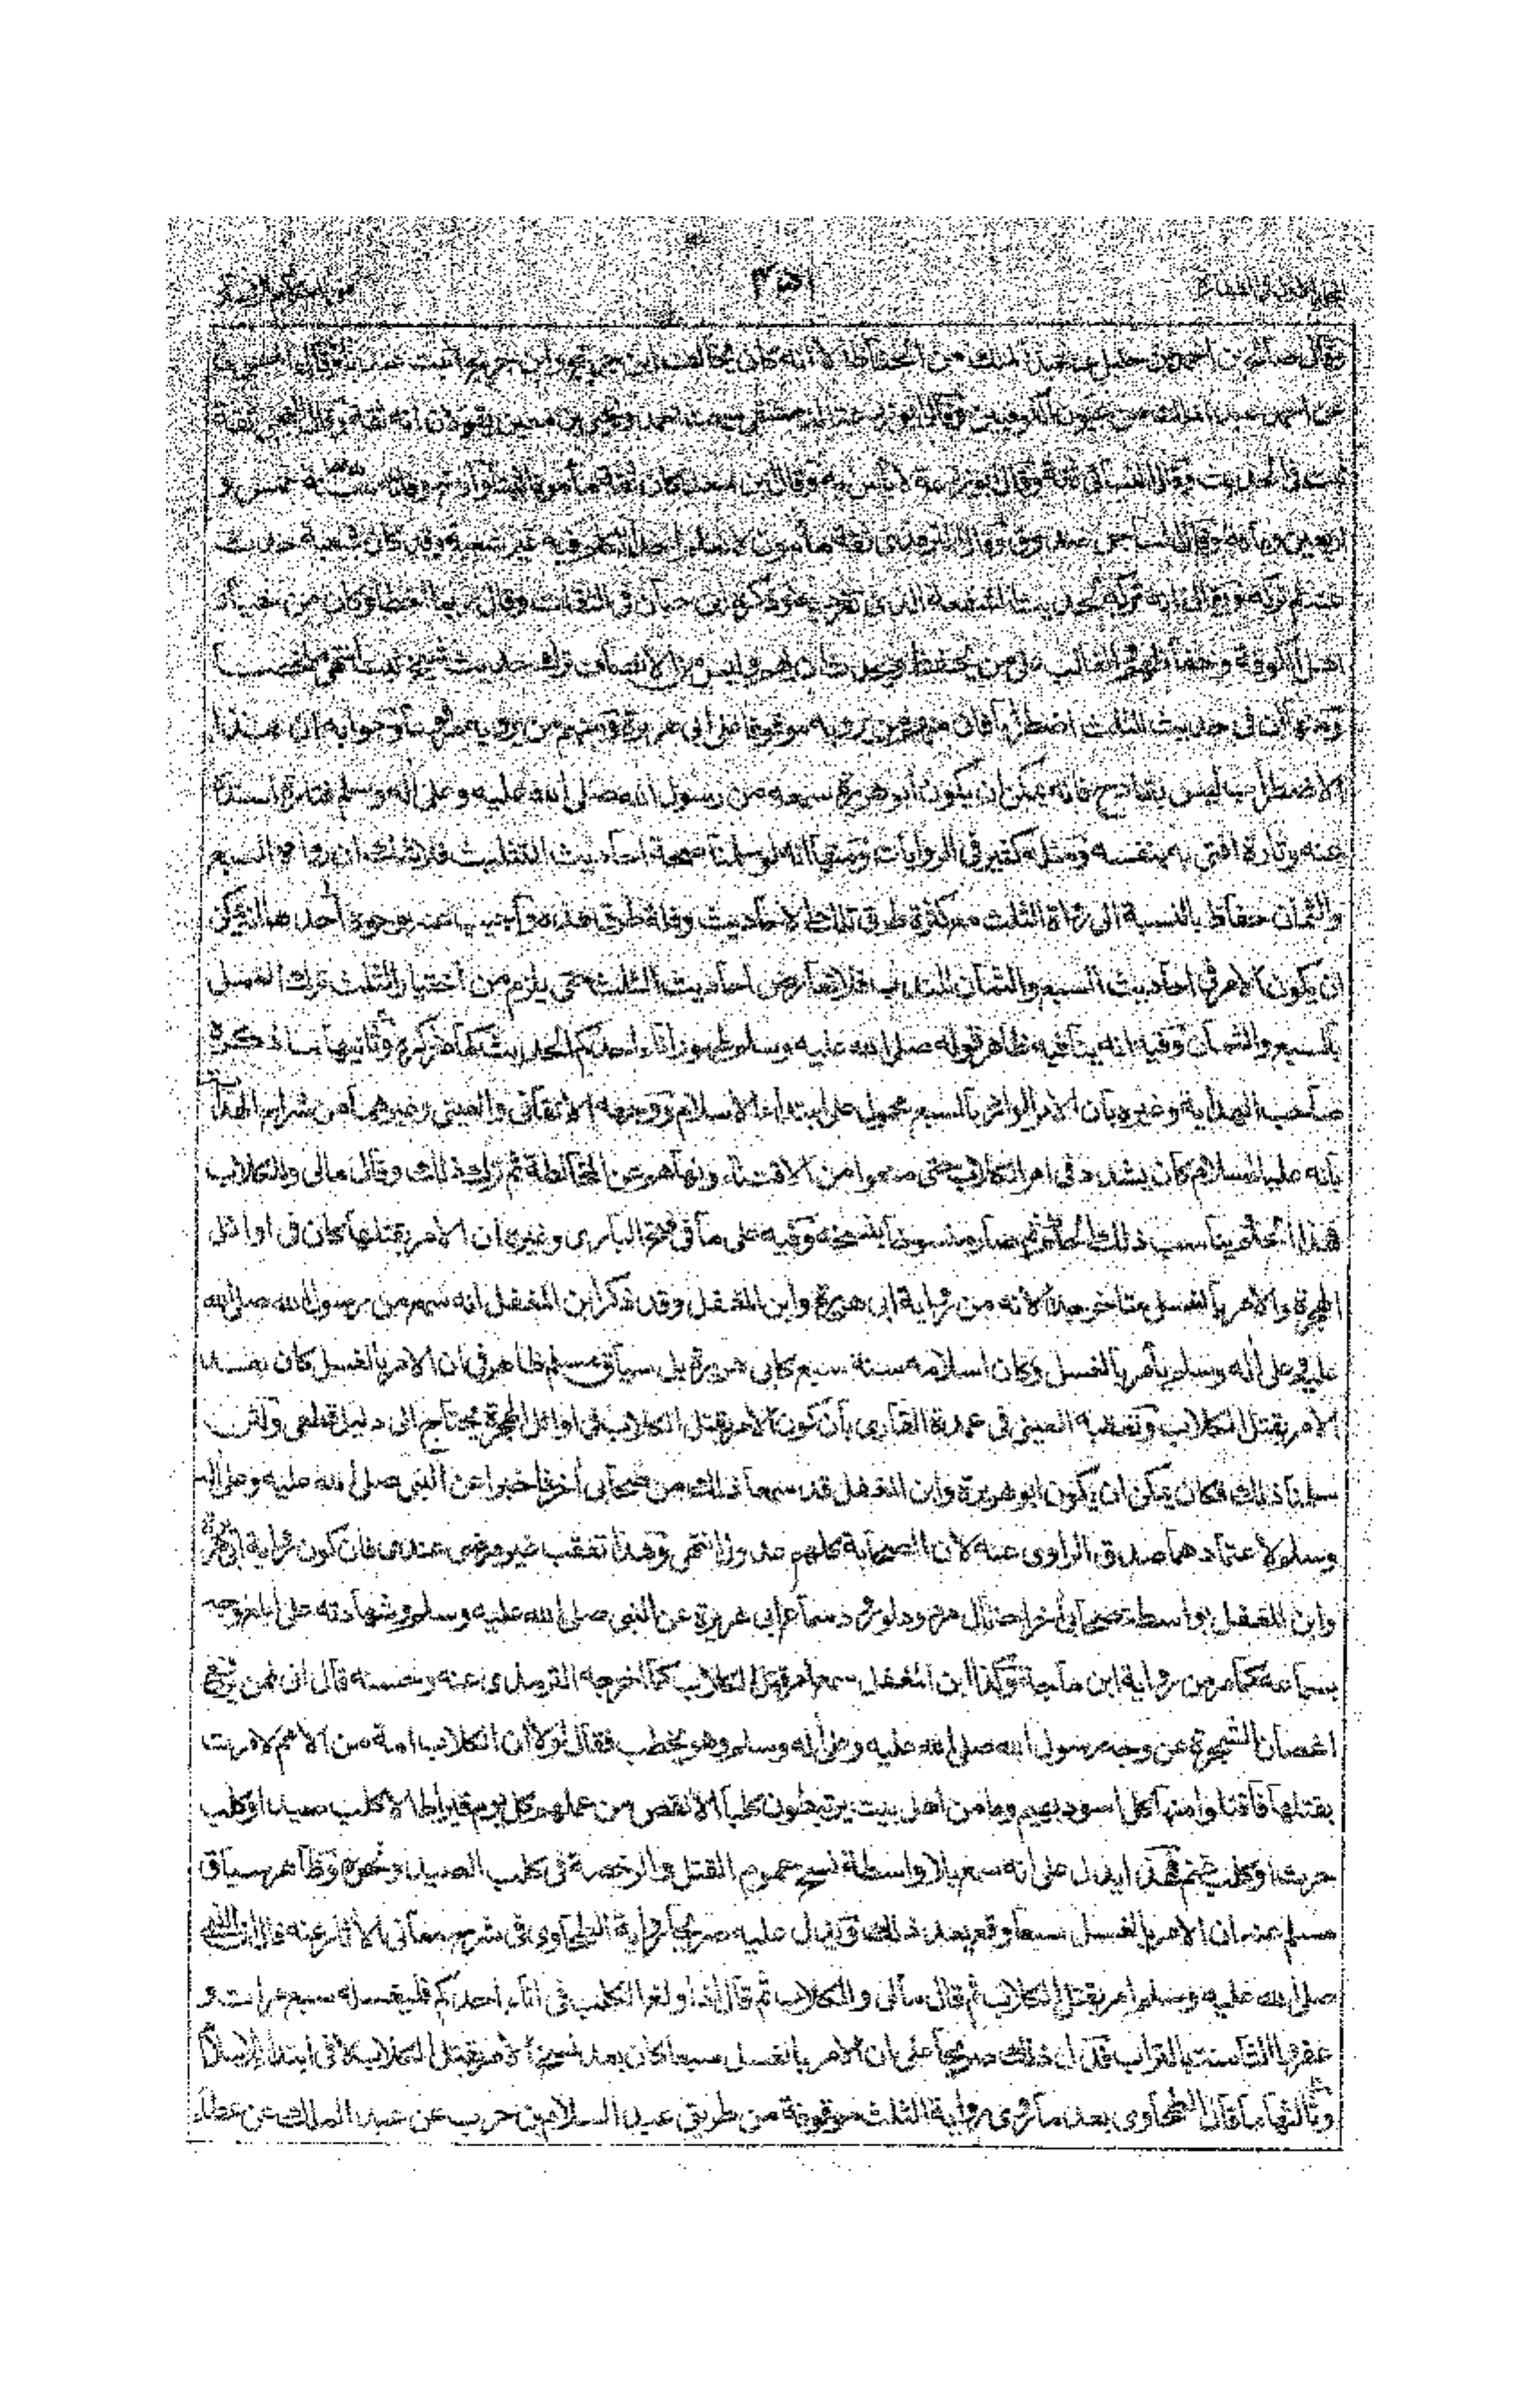 ٤٥١
وقال صالح بن احمد بن حنبل عبد الملك من الحفاظ الا انه كان يخالف ابن جريج وابن جريج اثبت عندنا وقال
عن احمد عبد الملك من عيون الكوفيين وقال ابو زرعة الدمشقي سمعت احمد ويحيى بن معين يقولان انه ثقة وقال العجلي ثقة
ثبت في الحديث وقال النسائي ثقة وقال ابو زرعة لا بأس به وقال ابن سعد كان ثقة مأمونا ثبتا وارخ وفاته سنة خمس و
اربعين ومأة وقال الساجي صدوق وقال الترمذي ثقة مأمون لا نعلم احدا تكلم فيه غير شعبة وقد كان شعبة حدث
عنه ثم تركه ويقال انه تركه لحديث الشفعة الذي تفرد به وذكره ابن حبان في الثقات وقال ربما اخطأ وكان من خيار
اهل الكوفة وحفاظهم والغالب على من يحفظ ويحدث ان يهم وليس من الانصاف ترك حديث شيخ ثبت انتهى ملخصا
ومنها ان في حديث الثلث اضطرابا فان منهم من يرويه موقوفا على ابي هريرة ومنهم من يرويه مرفوعا وجوابه ان هذا
الاضطراب ليس بقادح فانه يمكن ان يكون ابو هريرة سمعه من رسول الله صلى الله عليه وعلى اله وسلم فتارة اسنده
عنه وتارة افتى به بنفسه ومثله كثير في الروايات ومنها انه لو سلمنا صحة احاديث التثليث فلا شك ان رواة السبع
والثمان حفاظ بالنسبة الى رواة الثلث مع كثرة طرق تلك الاحاديث وقلة طرق هذه واجيب عنه بوجوه احدها انه يمكن
ان يكون الامر في احاديث السبع والثمان للندب فلا تعارض احاديث الثلث حتى يلزم من اختيار الثلث ترك العمل
بالسبع والثمان وفيه انه ينافيه ظاهر قوله صلى الله عليه وسلم طهور اناء احدكم الحديث كما مر ذكره وثانيها ما ذكره
صاحب الهداية وغيره بان الامر الوارد بالسبع محمول على ابتداء الاسلام ووجهه الاتقاني والعيني وغيرهما من شراح الهداية
بانه عليه السلام كان يشدد في امر الكلاب حتى منعوا من الاقتناء ونهاهم عن المخالطة ثم ترك ذلك وقال مالي والكلاب
فهذا الحكم يناسب ذلك الحكم ثم صار منسوخا بنسخه وفيه على ما في فتح الباري وغيره ان الامر بقتلها كان في اوائل
الهجرة والامر بالغسل متاخر جدا لانه من رواية ابي هريرة وابن المغفل وقد ذكر ابن المغفل انه سمع من رسول الله صلى الله
عليه وعلى اله وسلم يأمر بالغسل وكان اسلامه سنة سبع كابي هريرة بل سياق مسلم ظاهر في ان الامر بالغسل كان بعد
الامر بقتل الكلاب وتعقبه العيني في عمدة القاري بان كون الامر بقتل الكلاب في اوائل الهجرة يحتاج الى دليل قطعي ولئن
سلمنا ذلك فكان يمكن ان يكون ابو هريرة وابن المغفل قد سمعا ذلك من صحابي اخر فاخبرا عن النبي صلى الله عليه وعلى اله
وسلم لاعتمادهما صدق الراوي عنه لان الصحابة كلهم عدول انتهى وهذا تعقب غير مرضي عندي فان كون رواية ابي هريرة
وابن المغفل بواسطة صحابي اخر احتمال مردود لورود سماع ابي هريرة عن النبي صلى الله عليه وسلم وشهادته على ابلغ وجه
بسماعه كما مر من رواية ابن ماجة وكذا ابن المغفل سمع امر قتل الكلاب كما اخرجه الترمذي عنه وحسنه قال اني لمن يرفع
اغصان الشجرة عن وجه رسول الله صلى الله عليه وعلى اله وسلم وهو يخطب فقال لولا ان الكلاب امة من الامم لامرت
بقتلها فاقتلوا منها كل اسود بهيم وما من اهل بيت يرتبطون كلبا الا نقص من عملهم كل يوم قيراط الا كلب صيد او كلب
حرث او كلب غنم فهذا يدل على انه سمع بلا واسطة نسخ عموم القتل والرخصة في كلب الصيد ونحوه وظاهر سياق
مسلم عنه ان الامر بالغسل سبعا وقع بعد ذلك ويدل عليه صريحا رواية الطحاوي في شرح معاني الاثار عنه قال ان النبي
صلى الله عليه وسلم امر بقتل الكلاب ثم قال مالي والكلاب ثم قال اذا ولغ الكلب في اناء احدكم فليغسله سبع مرات و
عفروا الثامنة بالتراب فدل ذلك صريحا على ان الامر بالغسل سبعا كان بعد نسخ الامر بقتل الكلاب لا في ابتداء الاسلام
وثالثها ما قال الطحاوي بعد ما روى رواية الثلث موقوفة من طريق عبد السلام بن حرب عن عبد الملك عن عطاء